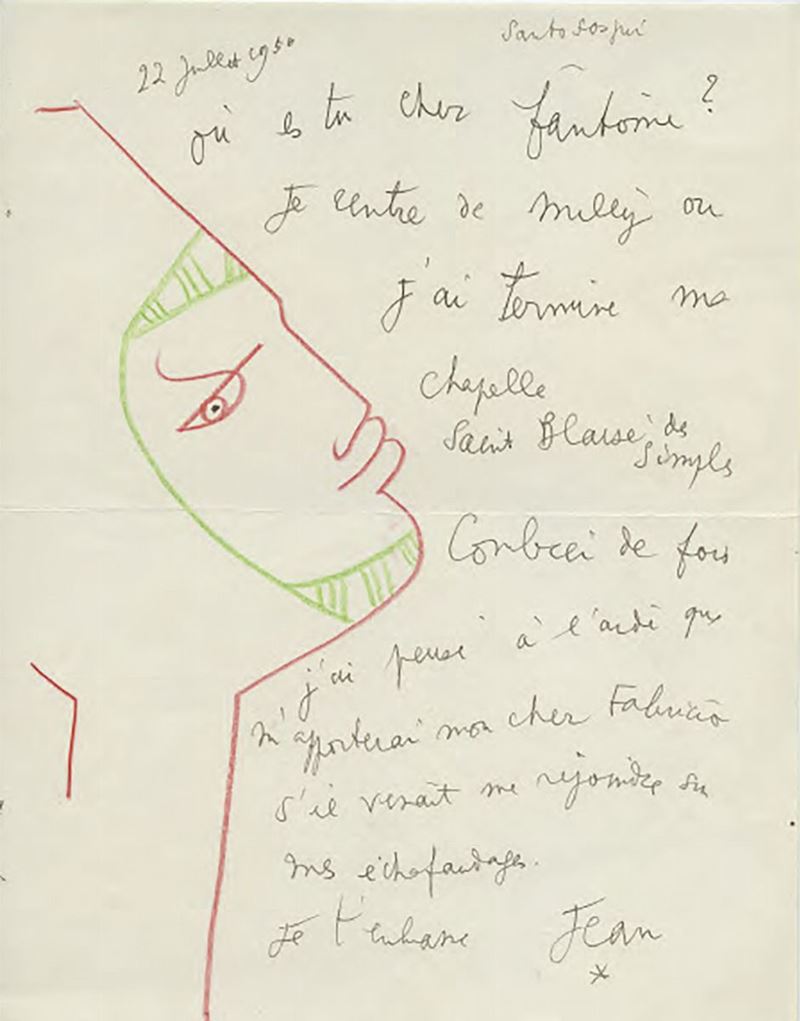 Santo Sospir
22 Juillet 195
où es tu cher fântôme ?
Je rentre de Milly ou
j'ai terminé ma
chapelle
Saint Blaise des
Simples
Combien de fois
j'ai pensé à l'aide que
m'apporterai mon cher Fabricio
s'il venait me rejoindre sur
mes échafaudages.
Je t'embrasse Jean
*